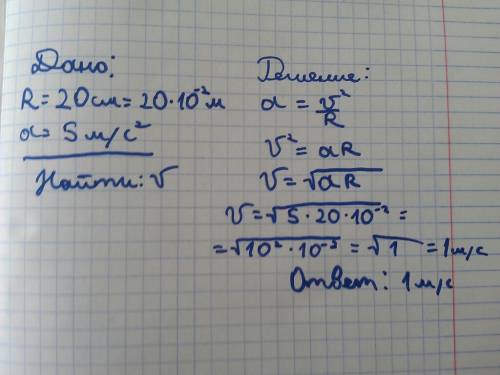 Дано:
R = 20 см = 20·10⁻² м
a = 5 м/с²
Найти: v
Решение:
a = v²/R
v² = aR
v = √aR
v = √5·20·10⁻² =
= √10²·10⁻² = √1 = 1 м/с
Ответ: 1 м/с